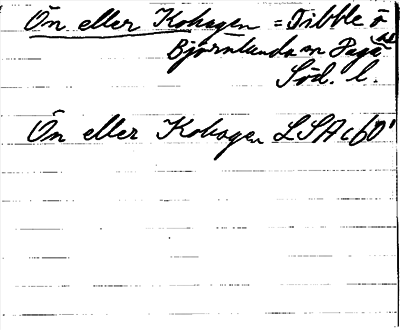 Ön eller Kohagen = Dibble ö
Björnlunda sn Daga
Söd. l.
Ön eller Kohagen LSA c60¹